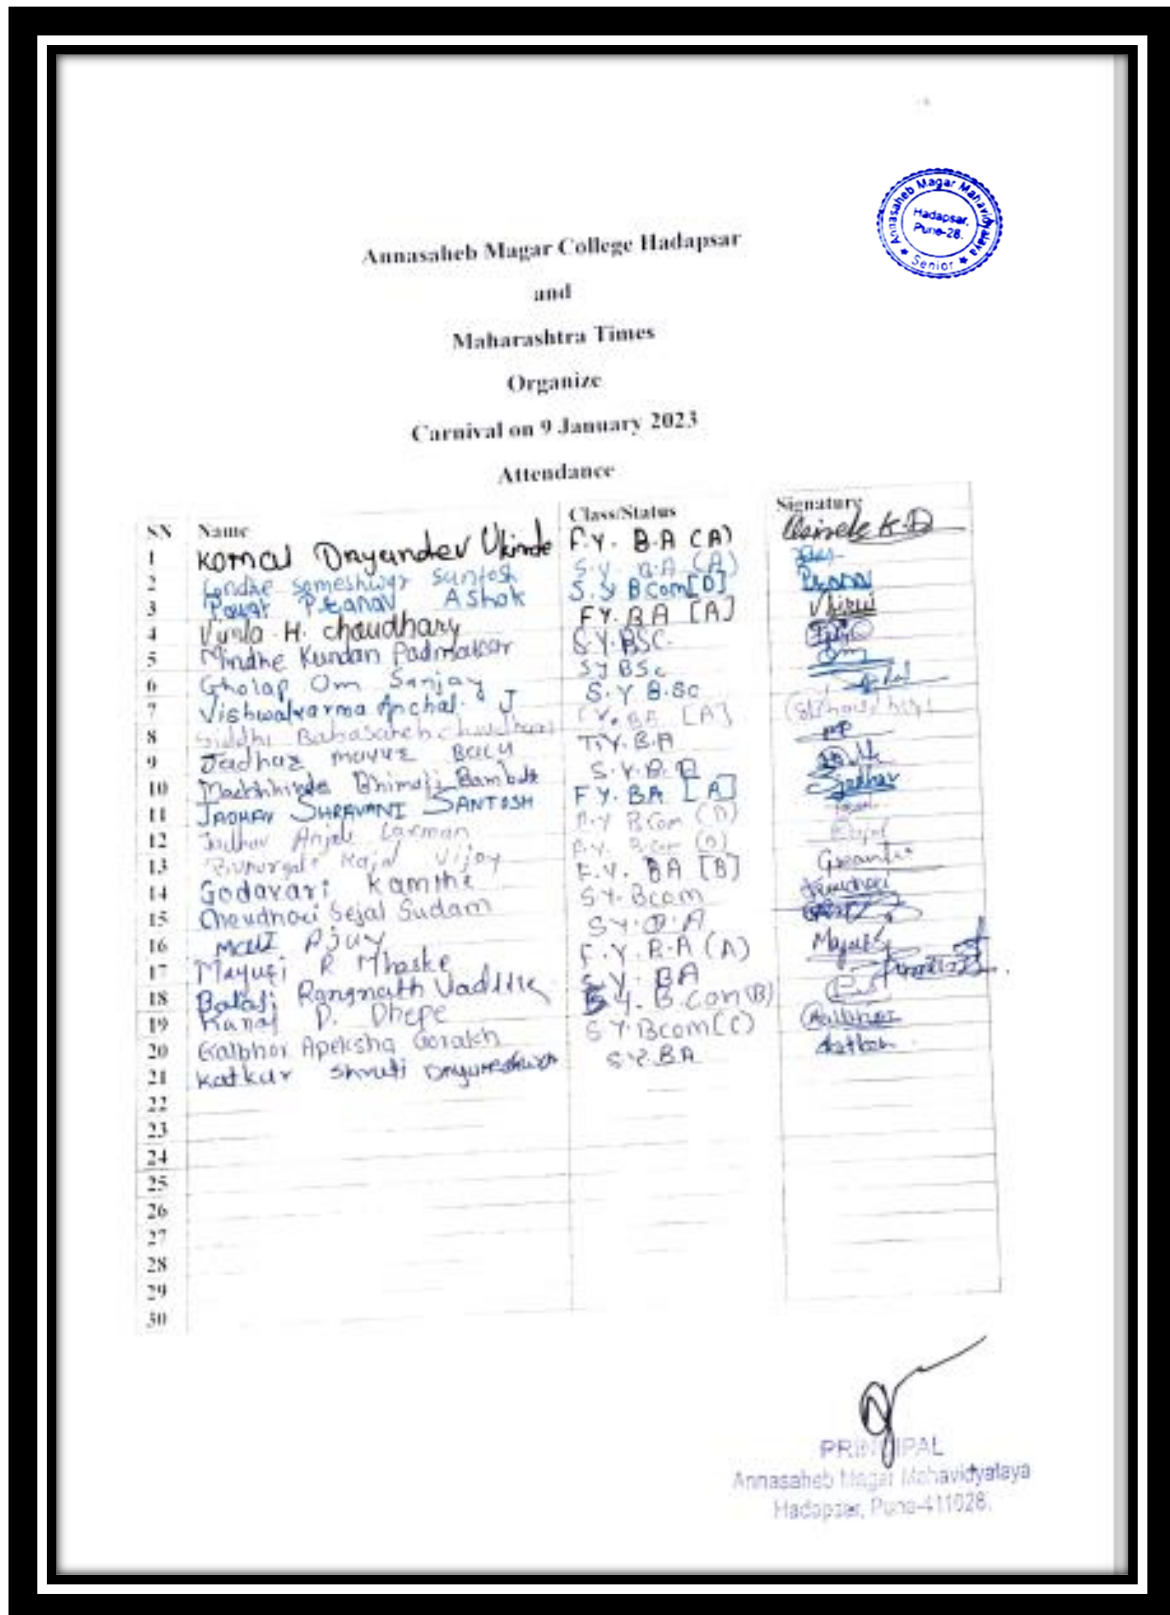 Annasaheb Magar Mahavidyalaya
Hadapsar,
Pune-28.
Senior
Annasaheb Magar College Hadapsar
and
Maharashtra Times
Organize
Carnival on 9 January 2023
Attendance
SN Name Class/Status Signature
1 Komal Dnyandev Ukirde F.Y. B.A (A) K.D
2 Londhe Someshwar Santosh S.Y. B.A (A)
3 Pawar Pranav Ashok S.Y BCom[D] Pranav
4 H. choudhary FY.BA [A]
5 Kundan Padmakar S.Y.BSC.
6 Gholap Om Sanjay SYBSc Om
7 Vishwakarma Anchal. J S.Y B.Sc
8 Siddhi Babasaheb choudhari F.Y.BA [A]
9 Jadhav T.Y.B.A
10 Bhimaji S.Y.B.A
11 JADHAV SHRAVANI SANTOSH F Y.BA [A] Jadhav
12 Jadhav Anjali Laxman BCom (D)
13 Kajal Vijay BCom (D) Kajal
14 Godavari Kamthe F.Y. BA [B]
15 Choudhari Sejal Sudam SY.Bcom
16 Ajay
17 Mayuri R Mhaske F.Y.B.A (A)
18 Balaji Rangnath S.Y. BA
19 D. Dhepe S.Y. B.Com(B)
20 Galbhor Apeksha Gorakh S Y.Bcom(C) Galbhor
21 Katkar Shruti S.Y.BA Katkar
22
23
24
25
26
27
28
29
30
PRINCIPAL
Annasaheb Magar Mahavidyalaya
Hadapsar, Pune-411028.